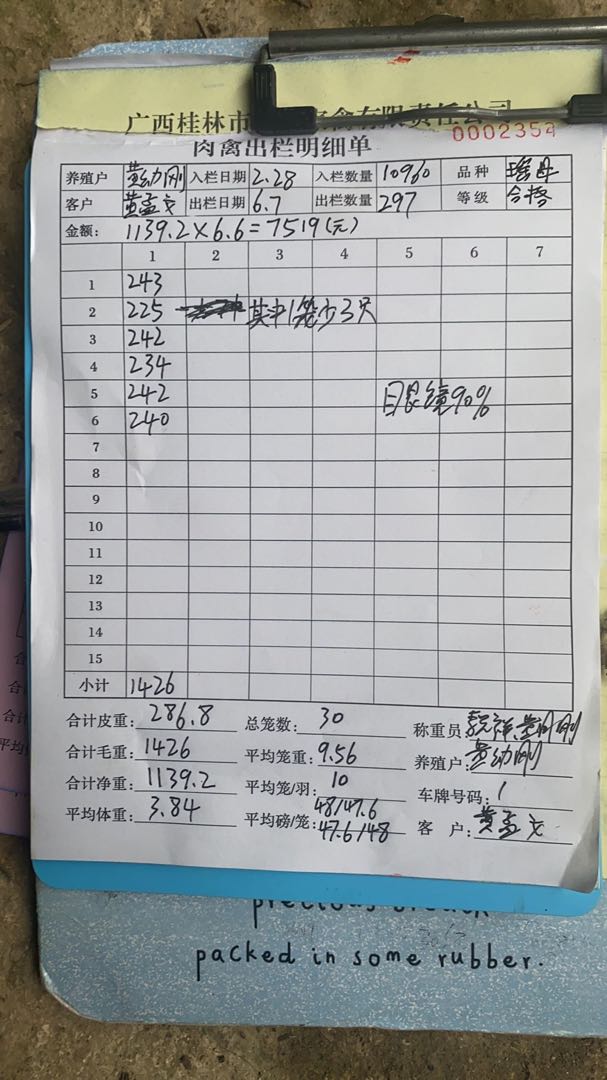 广西桂林市 禽有限责任公司
0002354
肉禽出栏明细单
养殖户 黄幼刚 入栏日期 2.28 入栏数量 10960 品种 瑶母
客户 黄孟文 出栏日期 6.7 出栏数量 297 等级 合格
金额: 1139.2×6.6=7519(元)
1 2 3 4 5 6 7
1 243
2 225 其中1笼少3只
3 242
4 234
5 242 目艮镜90%
6 240
7
8
9
10
11
12
13
14
15
小计 1426
合计皮重: 286.8 总笼数: 30 称重员:
合计毛重: 1426 平均笼重: 9.56 养殖户: 黄幼刚
合计净重: 1139.2 平均笼/羽: 10 车牌号码: 1
平均体重: 3.84 平均磅/笼: 48/47.6 47.6/48 客 户: 黄孟文
packed in some rubber.